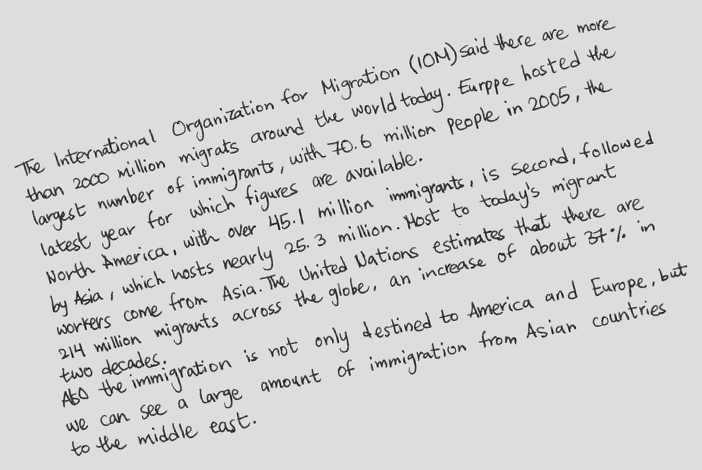 The International Organization for Migration (IOM) said there are more
than 2000 million migrats around the world today. Eurppe hosted the
largest number of immigrants, with 70.6 million people in 2005, the
latest year for which figures are available.
North America, with over 45.1 million immigrants, is second, followed
by Asia, which hosts nearly 25.3 million. Most to today's migrant
workers come from Asia. The United Nations estimates that there are
214 million migrants across the globe, an increase of about 37% in
two decades.
Also the immigration is not only destined to America and Europe, but
we can see a large amount of immigration from Asian countries
to the middle east.